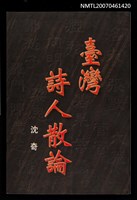 NMTL20070461420
臺灣
詩人散論
沈奇